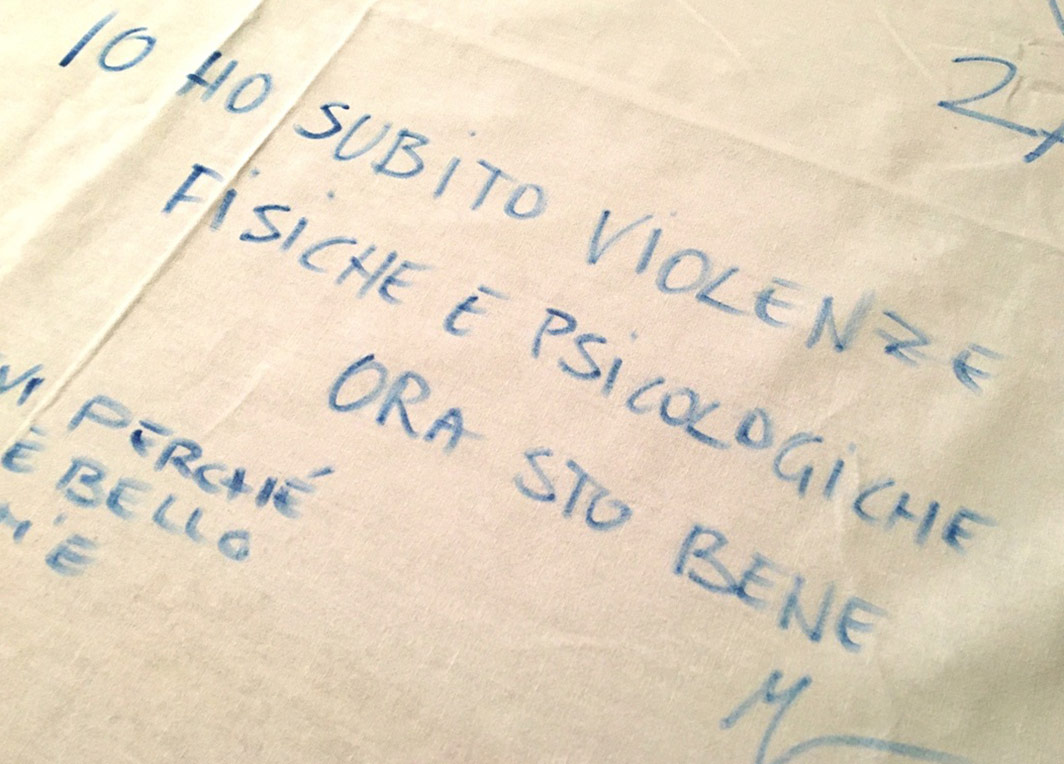 IO HO SUBITO VIOLENZE
FISICHE E PSICOLOGICHE
ORA STO BENE
M
PERCHÉ
E BELLO
È